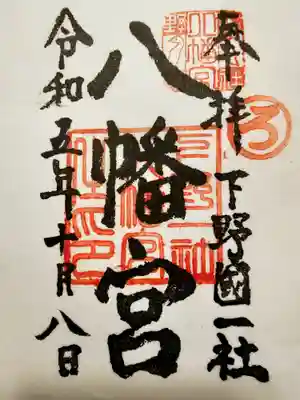 奉拝
下野國一社
八幡宮
令和五年十月八日